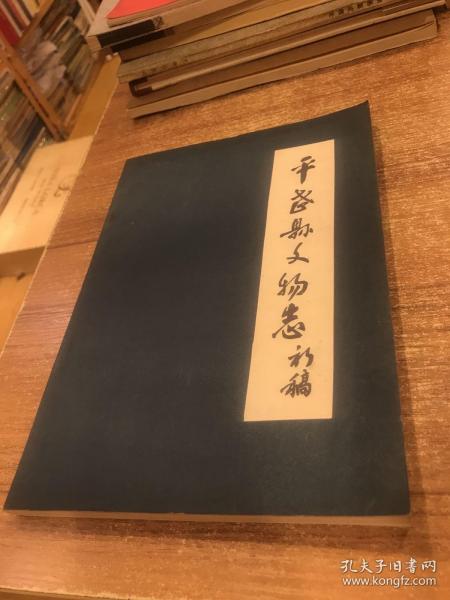 平邑县文物志初稿
孔夫子旧书网
www.kongfz.com